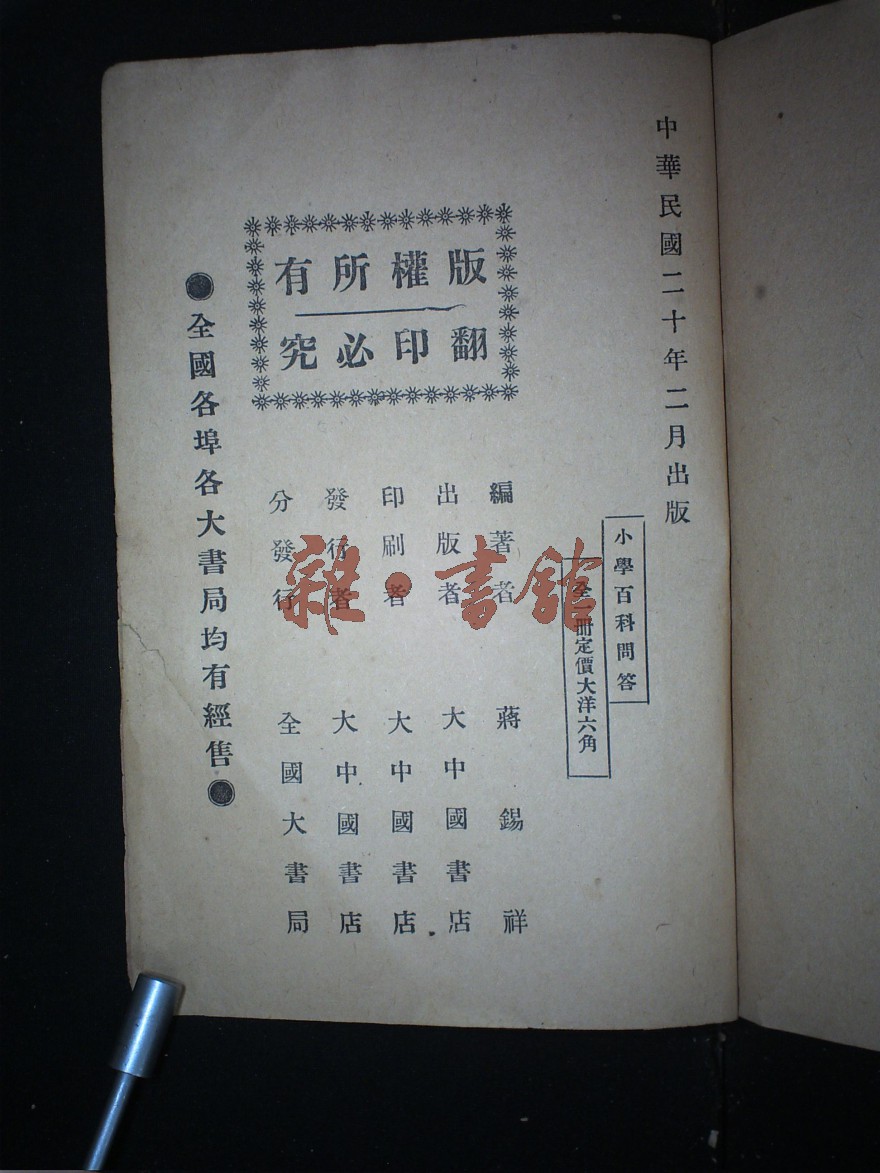 中華民國二十年二月出版
小學百科問答
全一冊定價大洋六角
編著者 蔣錫祥
出版者 大中國書店
印刷者 大中國書店
發行者 大中國書店
分發行 全國大書局
版權所有
翻印必究
●全國各埠各大書局均有經售●
雜·書館